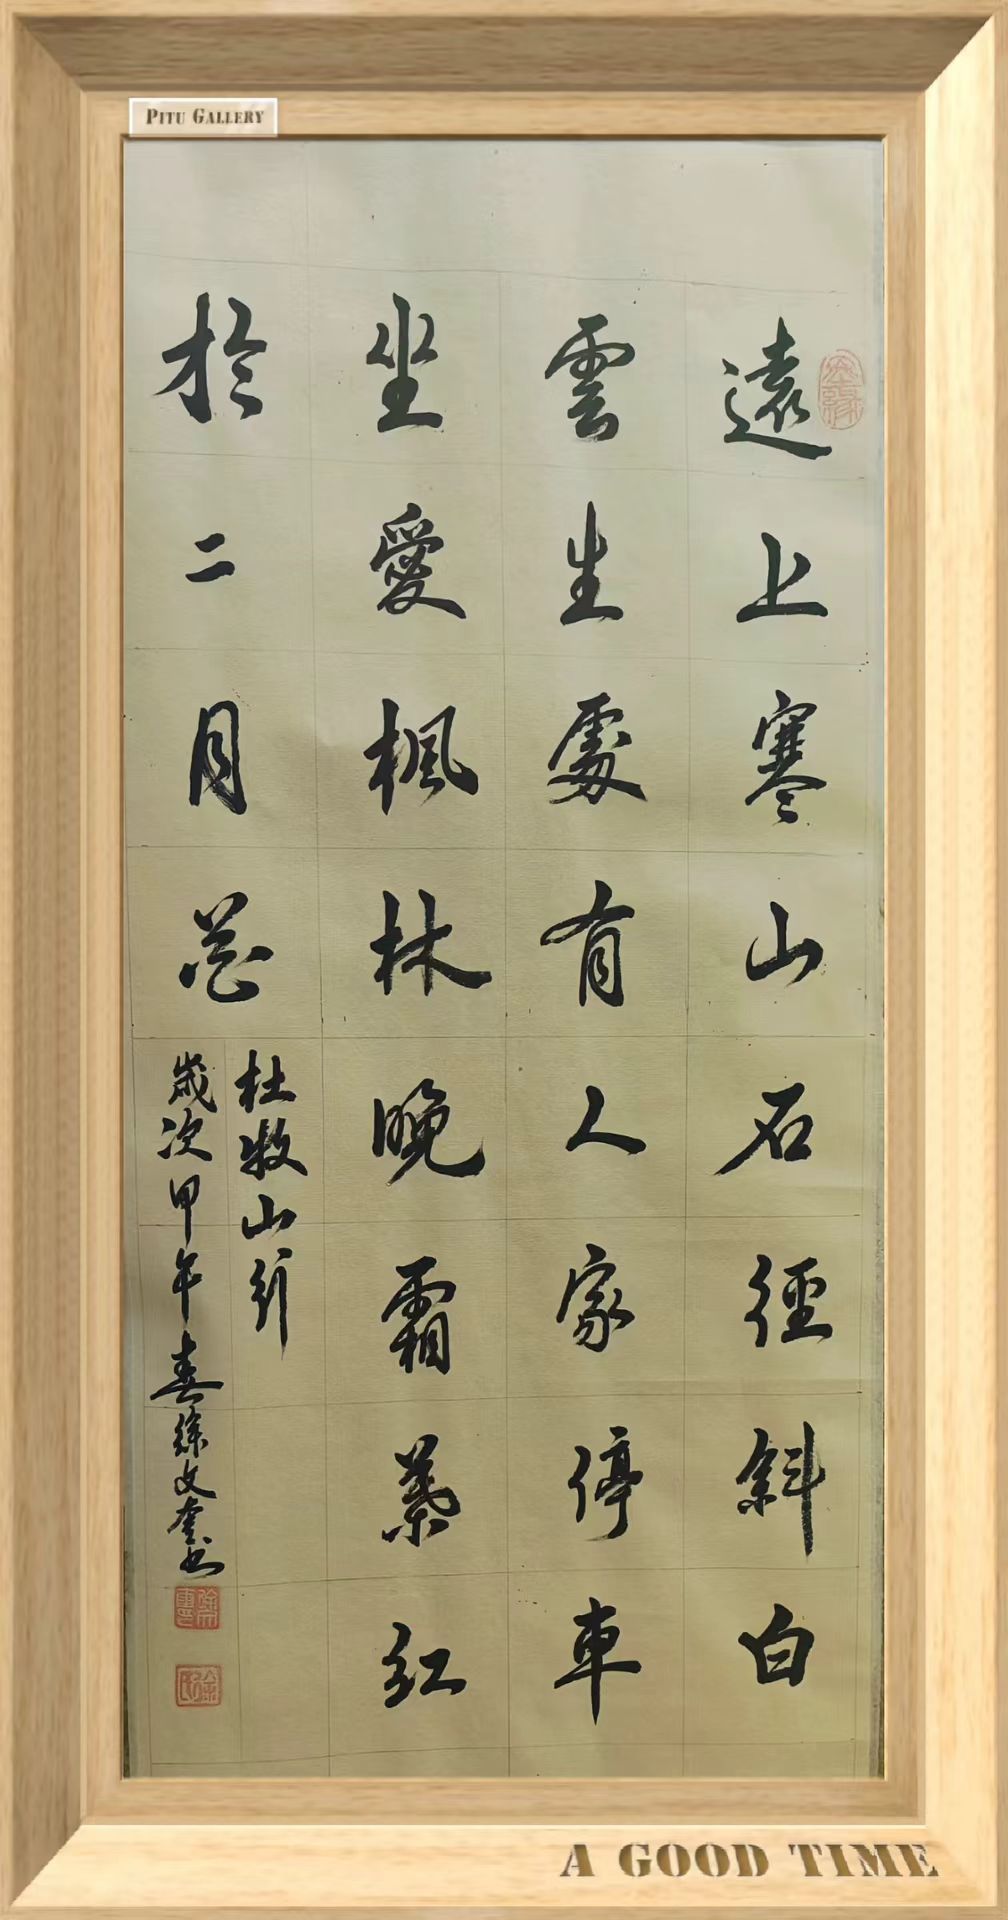 PITU GALLERY
遠上寒山石徑斜白
雲生處有人家停車
坐愛楓林晚霜葉紅
於二月花
杜牧山行
歲次甲午春徐文奎书
A GOOD TIME